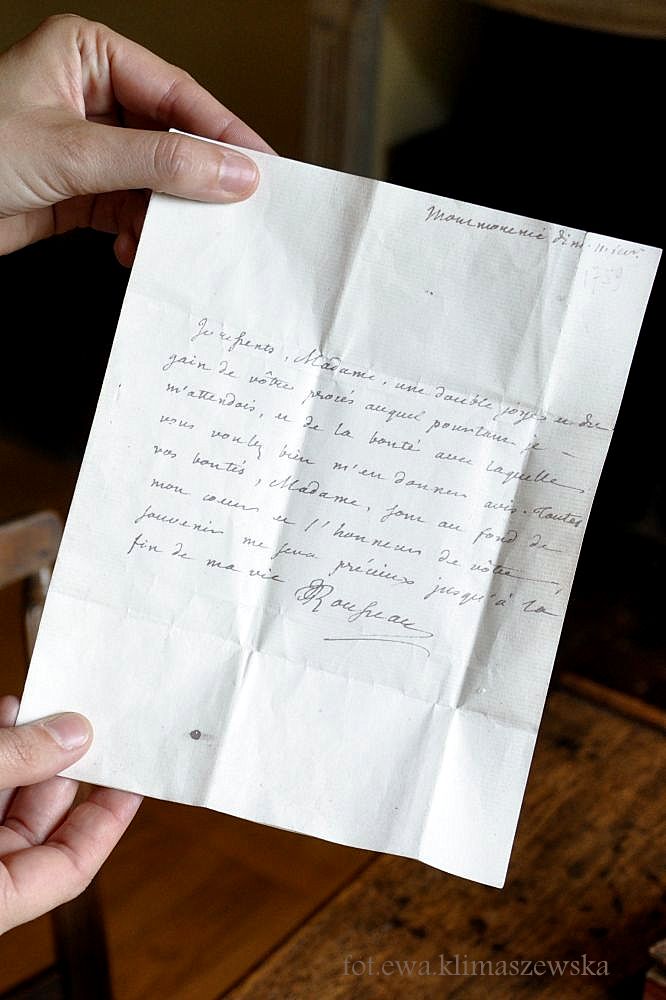 Montmorenci dim. 11 jev.
1759
Je ressents, Madame, une double joye et du
gain de vôtre procés auquel pourtant je
m'attendois, et de la bonté avec laquelle
vous voulez bien m'en donner avis. Toutes
vos bontés, Madame, sont au fond de
mon cœur et l'honneur de vôtre
souvenir me sera précieux jusqu'à la
fin de ma vie JJRousseau
fot.ewa.klimaszewska